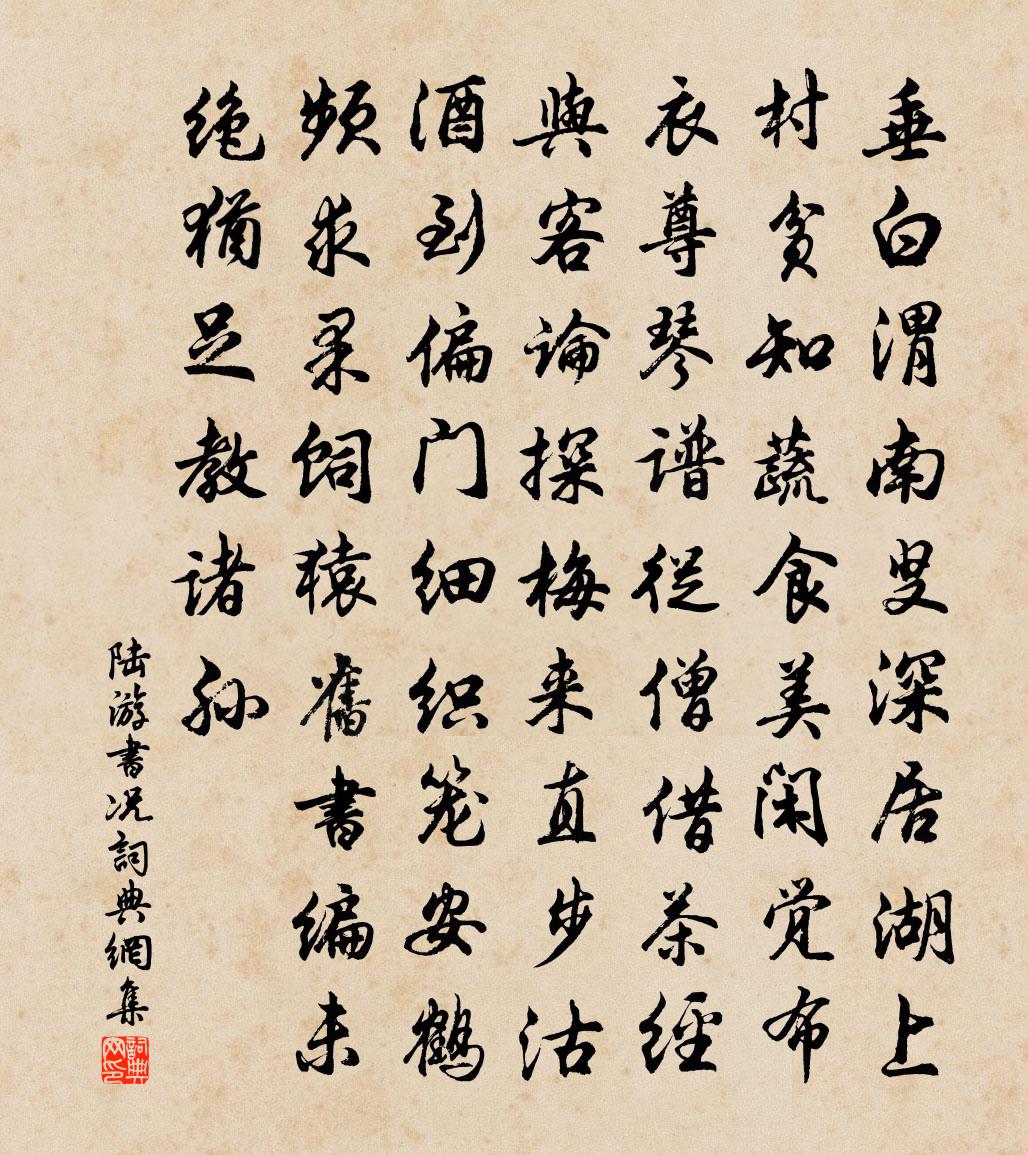 垂白渭南叟深居湖上
村贫知蔬食美闲觉布
衣尊琴谱從僧借茶經
與客論探梅来直步沽
酒到偏门细织笼安鶴
频求果饲猿舊書编未
绝猶足教诸孙
陆游書况詞典網集
詞典网印